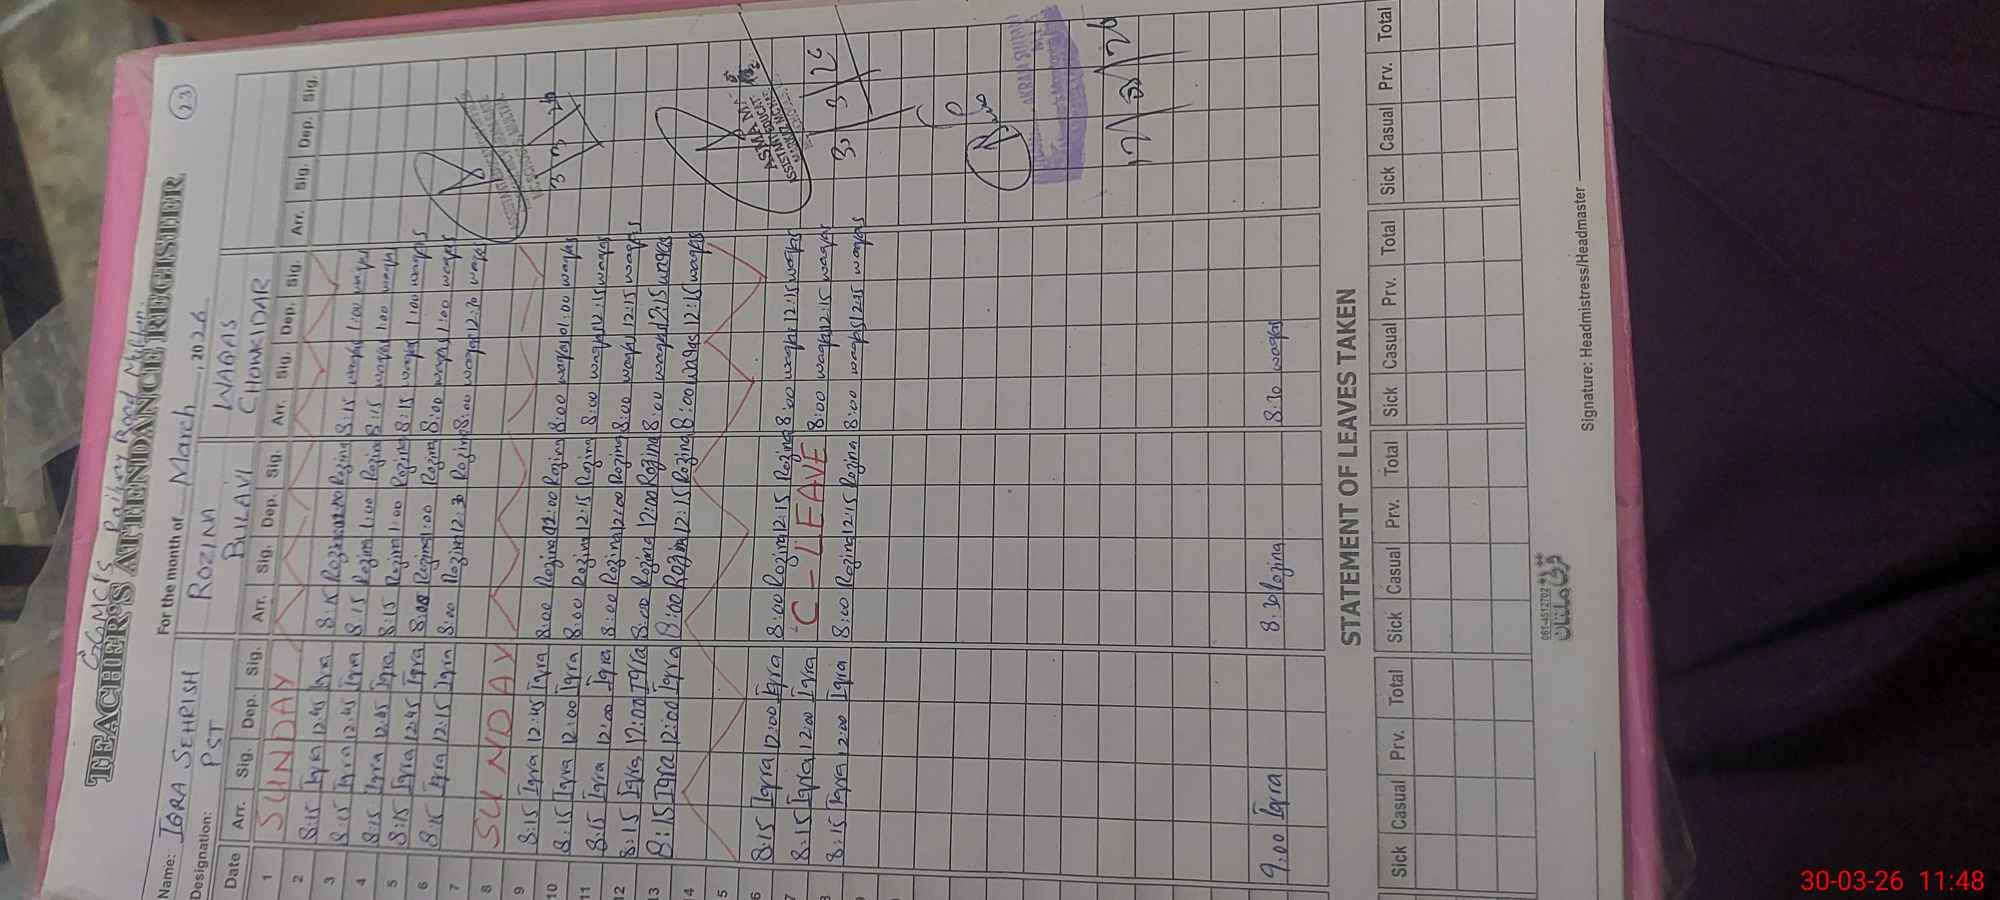 23
GGMCPS Railway Road Multan.
TEACHER'S ATTENDANCE REGISTER
For the month of March ,2026
Name: IQRA SEHRISH ROZINA WAQAS
Designation: PST BULAVI CHOWKADAR
Date Arr. Sig. Dep. Sig. Arr. Sig. Dep. Sig. Arr. Sig. Dep. Sig. Arr. Sig. Dep. Sig.
1 SUNDAY
2 8:15 Iqra 12:45 Iqra 8:15 Rozina Rozina 8:15 waqas 1:00 waqas
3 8:15 Iqra 12:45 Iqra 8:15 Rozina 1:00 Rozina 8:15 waqas 1:00 waqas
4 8:15 Iqra 12:45 Iqra 8:15 Rozina 1:00 Rozina 8:15 waqas 1:00 waqas
5 8:15 Iqra 12:45 Iqra 8:00 Rozina 1:00 Rozina 8:00 waqas 1:00 waqas
6 8:15 Iqra 12:15 Iqra 8:00 Rozina 12:30 Rozina 8:00 waqas 12:30 waqas
7
8 SUNDAY
9 8:15 Iqra 12:45 Iqra 8:00 Rozina Rozina 8:00 waqas 1:00 waqas
10 8:15 Iqra 12:00 Iqra 8:00 Rozina 12:15 Rozina 8:00 waqas 12:15 waqas
11 8:15 Iqra 12:00 Iqra 8:00 Rozina 12:00 Rozina 8:00 waqas 12:15 waqas
12 8:15 Iqra 12:00 Iqra 8:00 Rozina 12:00 Rozina 8:00 waqas 12:15 waqas
13 8:15 Iqra 12:00 Iqra 8:00 Rozina 12:15 Rozina 8:00 waqas 12:15 waqas
14
5
6 8:15 Iqra 12:00 Iqra 8:00 Rozina 12:15 Rozina 8:00 waqas 12:15 waqas
7 8:15 Iqra 12:00 Iqra C-LEAVE 8:00 waqas 12:15 waqas
8:15 Iqra 12:00 Iqra 8:00 Rozina 12:15 Rozina 8:00 waqas 12:15 waqas
9:00 Iqra 8:30 Rozina 8:30 waqas
ASMA
STATEMENT OF LEAVES TAKEN
Sick Casual Prv. Total Sick Casual Prv. Total Sick Casual Prv. Total Sick Casual Prv. Total
061-4512702
Signature: Headmistress/Headmaster
30-03-26 11:48